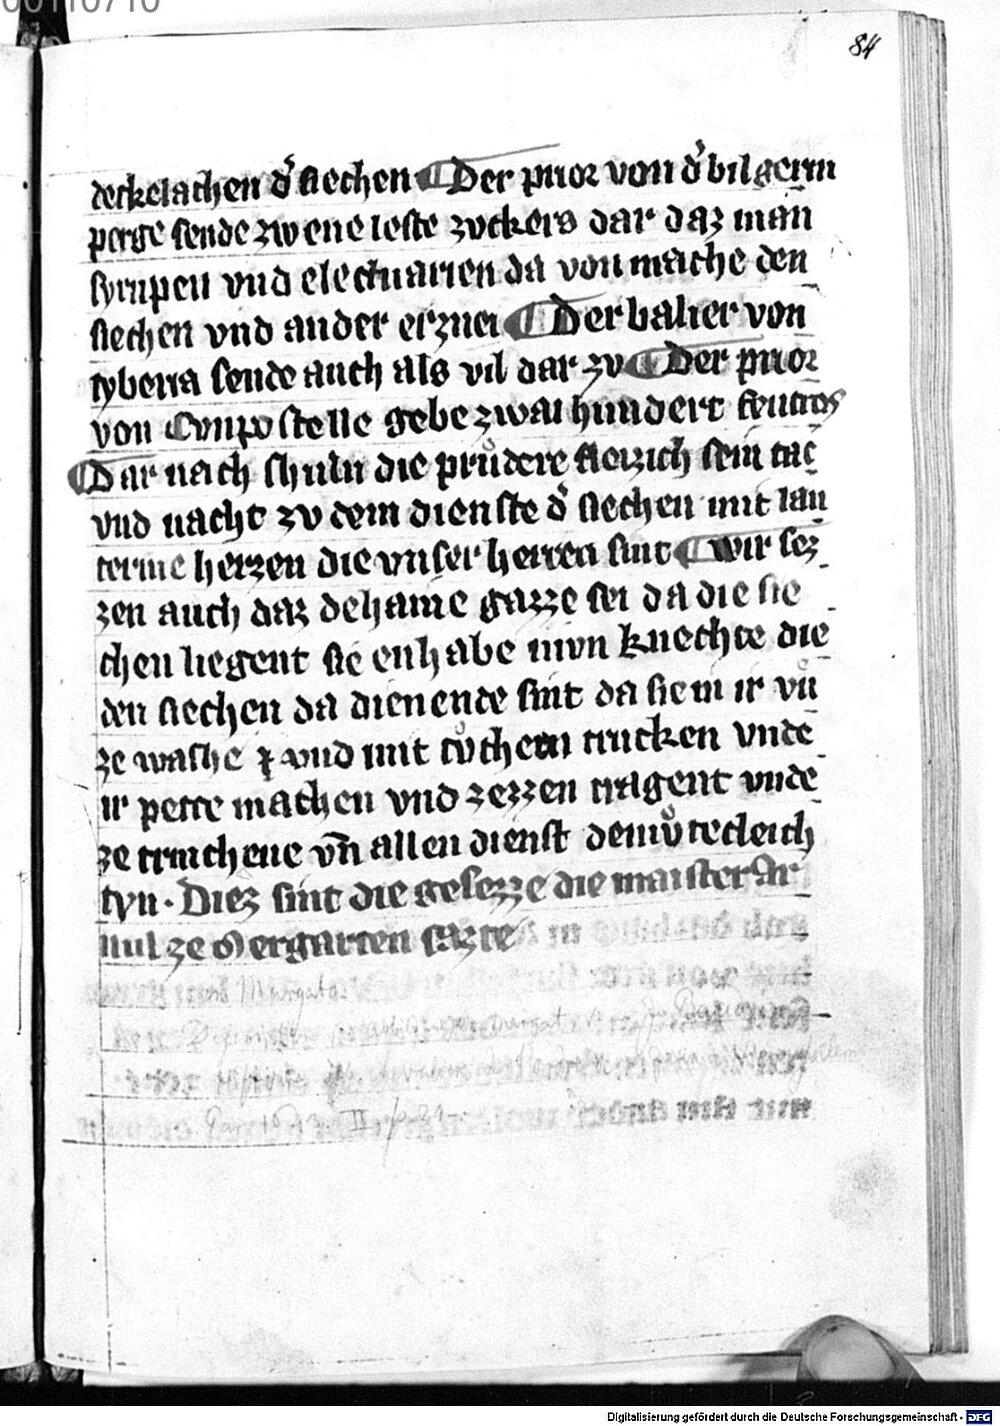 00110710
84
deckelachen d͛ siechen ¶ Der prior von d͛ bilgerim
perge sende zwene leste zvckers dar daz man
syrupen vnd electuarien da von mache den
siechen vnd ander erznei ¶ Der balier von
tyberia sende auch als vil dar zv ¶ Der prior
von Cvnpostelle gebe zwai hundert
¶ Dar nach shuln die průdere fleizich sein tac
vnd nacht zv dem dienste d͛ siechen mit lau
terme herzen die vnser herren sint ¶ wir sez
zen auch daz dehaine gazze sei da die sie
chen liegent sie enhabe nivn knechte die
den siechen da dienende sint da sie in ir vů
ze washe vnd mit tůchern trucken vnde
ir pette machen vnd zezzen tragent vnde
ze trinchene vn̄ allen dienst demůtecleich
tvn · Diez sint die gesezze die maister Ar
nul ze Mergarten sazte
Margato
1913 II p 24
Digitalisierung gefördert durch die Deutsche Forschungsgemeinschaft - DFG